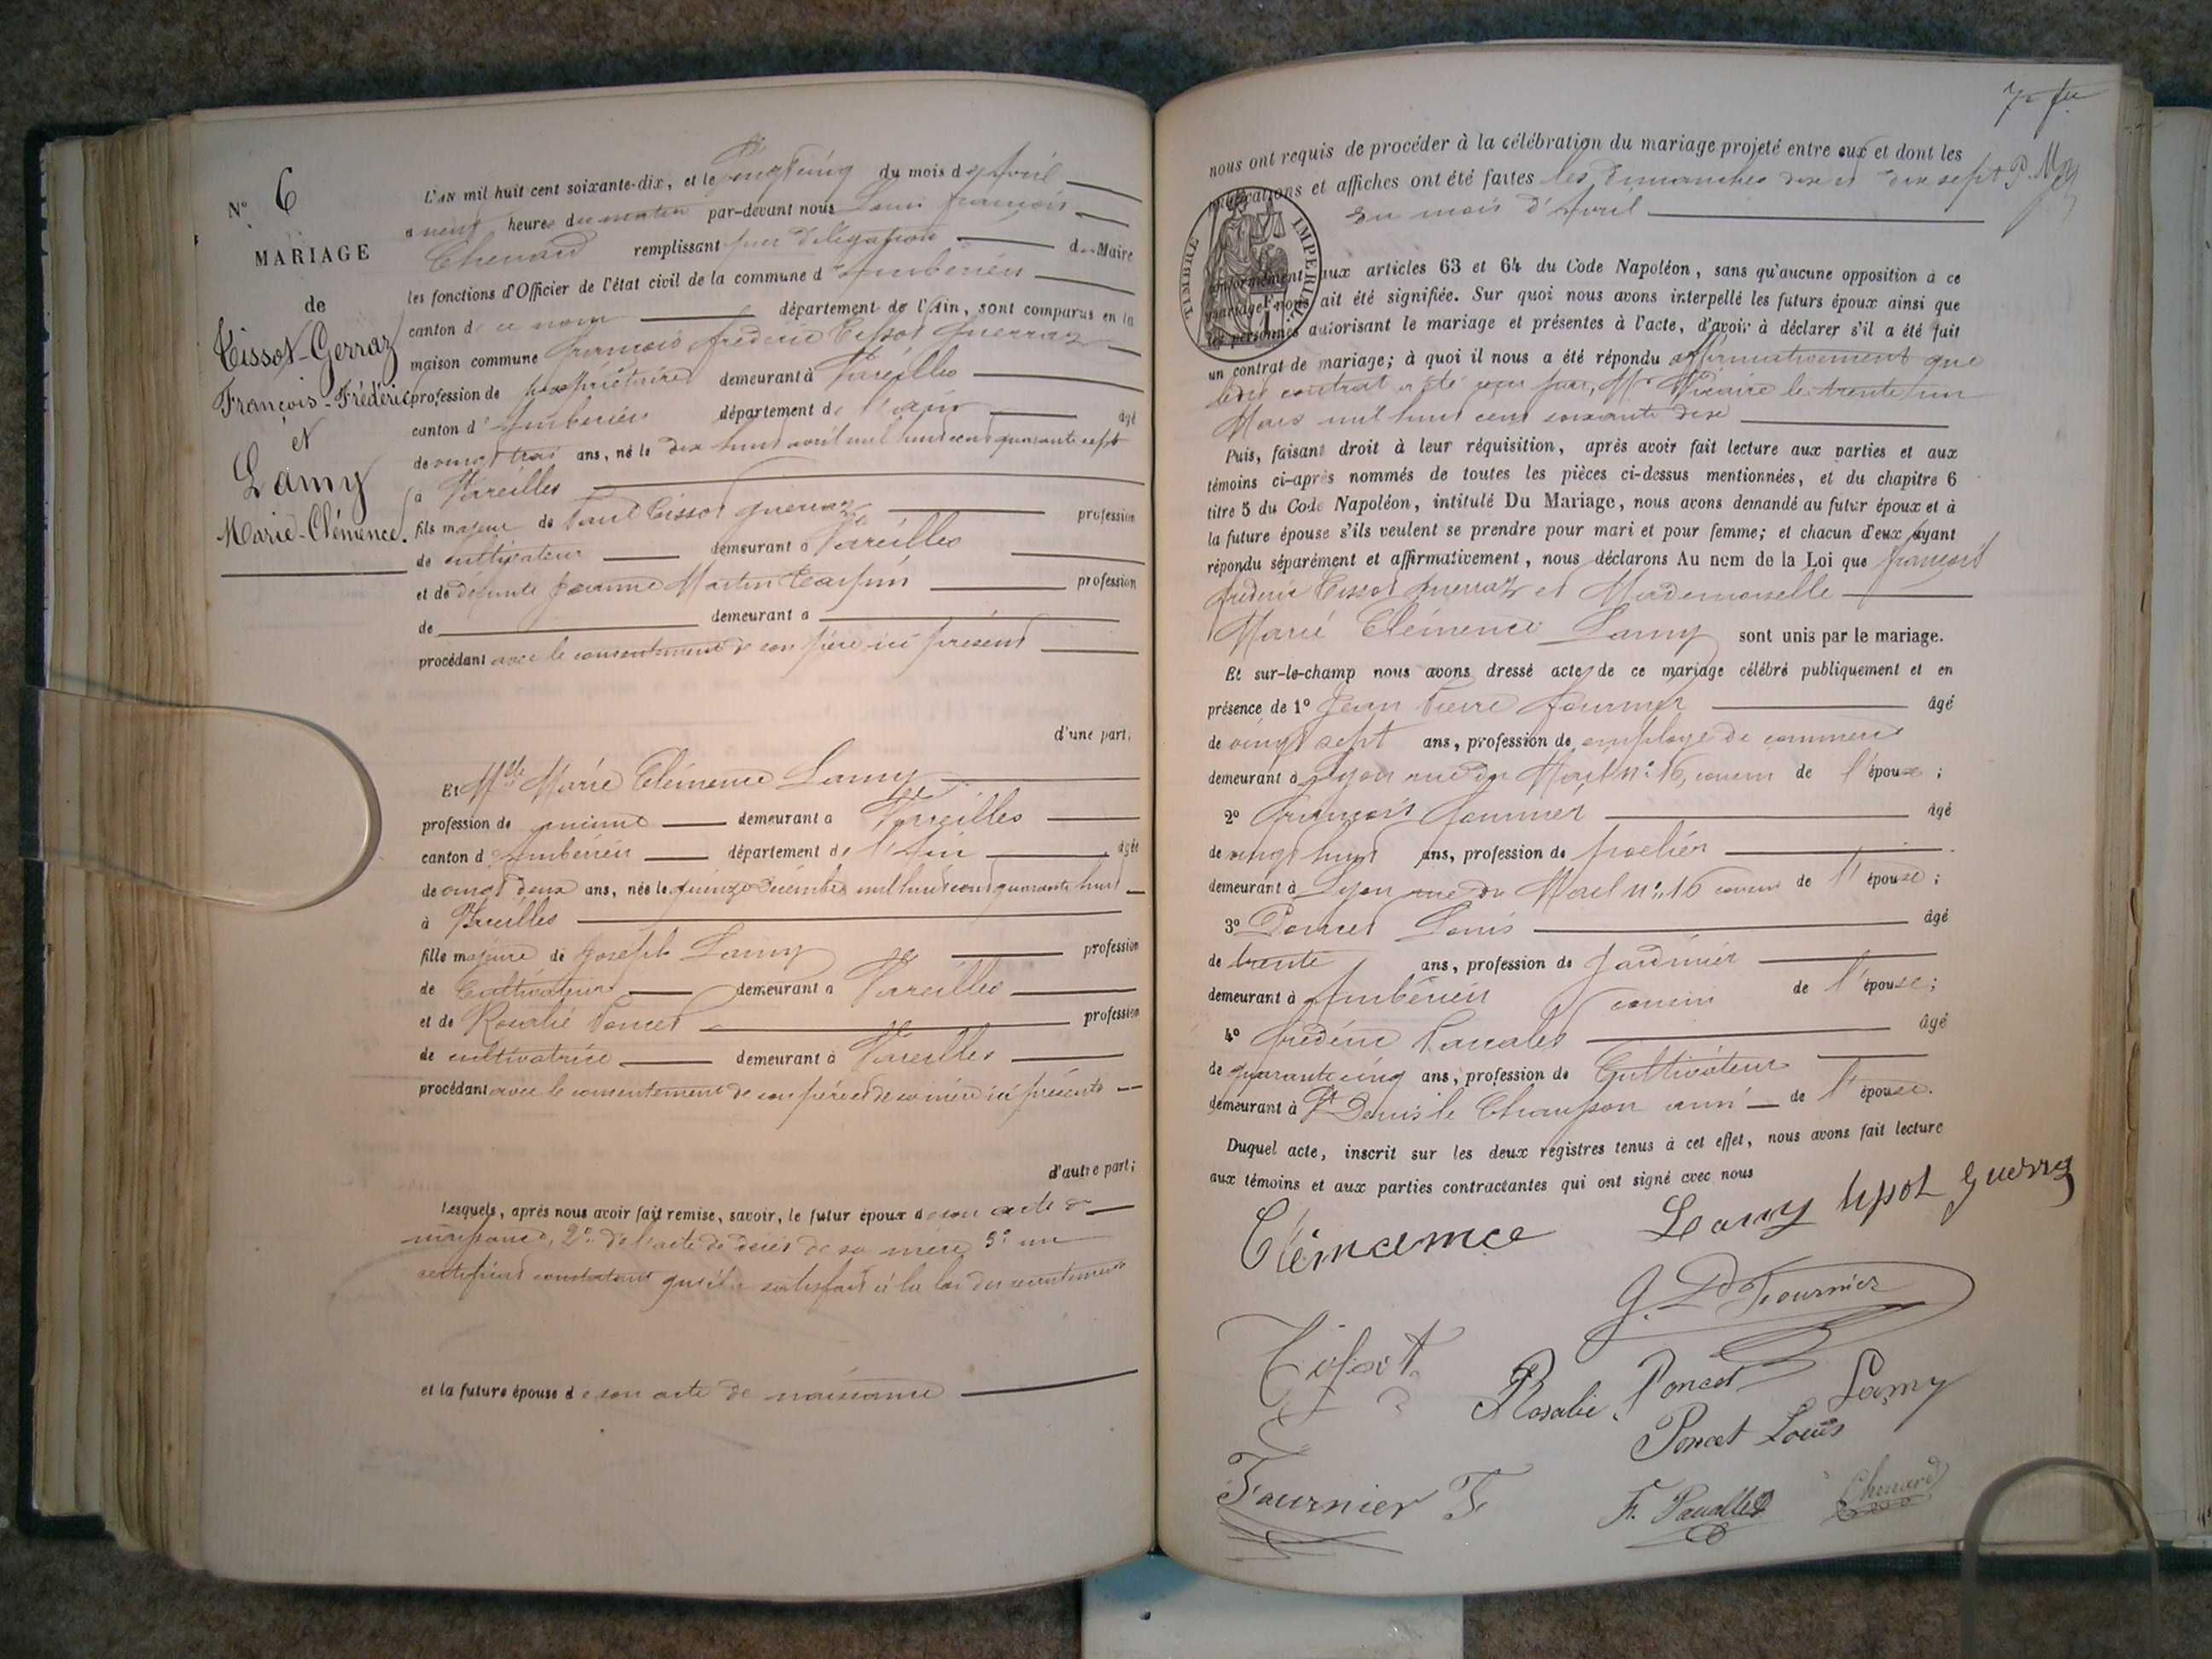 N° 6
MARIAGE
de
Tissot-Gerraz
François-Frédéric
et
Lamy
Marie-Clémence.
L'AN mil huit cent soixante-dix, et le vingt cinq du mois d'Avril
a neuf heures du matin par-devant nous Louis françois
Chenard remplissant par délégation du Maire
les fonctions d'Officier de l'état civil de la commune d'Ambérieu
canton de ce nom département de l'Ain, sont comparus en la
maison commune françois frédéric Tissot Guerraz
profession de propriétaire demeurant à Vareilles
canton d'Ambérieu département de l'ain âgé
de vingt trois ans, né le dix huit avril mil huit cent quarante sept
à Vareilles
fils majeur de Paul Tissot guerraz profession
de cultivateur demeurant à Vareilles
et de défunte Jeanne Martin profession
de demeurant à
procédant avec le consentement de son père ici présent
d'une part;
Et Mlle Marie Clémence Lamy
profession de demeurant à Vareilles
canton d'Ambérieu département de l'Ain âgée
de vingt deux ans, née le quinze Décembre mil huit cent quarante huit
à Vareilles
fille majeure de Joseph Lamy profession
de Cultivateur demeurant à Vareilles
et de Rosalie Poncet profession
de cultivatrice demeurant à Vareilles
procédant avec le consentement de son père et de sa mère ici présents
d'autre part;
Lesquels, après nous avoir fait remise, savoir, le futur époux de son acte de
naissance, 2° de l'acte de décès de sa mère 3° un
certificat constatant qu'il a satisfait à la loi du recrutement
et la future épouse de son acte de naissance
7e fet
nous ont requis de procéder à la célébration du mariage projeté entre eux et dont les
publications et affiches ont été faites les Dimanches dix et dix sept
du mois d'Avril
TIMBRE IMPERIAL
conformément aux articles 63 et 64 du Code Napoléon, sans qu'aucune opposition à ce
mariage nous ait été signifiée. Sur quoi nous avons interpellé les futurs époux ainsi que
les personnes autorisant le mariage et présentes à l'acte, d'avoir à déclarer s'il a été fait
un contrat de mariage; à quoi il nous a été répondu affirmativement que
ledit contrat a été reçu par Me Vicaire le trente un
Mars mil huit cent soixante dix
Puis, faisant droit à leur réquisition, après avoir fait lecture aux parties et aux
témoins ci-après nommés de toutes les pièces ci-dessus mentionnées, et du chapitre 6
titre 5 du Code Napoléon, intitulé Du Mariage, nous avons demandé au futur époux et à
la future épouse s'ils veulent se prendre pour mari et pour femme; et chacun d'eux ayant
répondu séparément et affirmativement, nous déclarons Au nom de la Loi que françois
frédéric Tissot guerraz et Mademoiselle
Marie Clémence Lamy sont unis par le mariage.
Et sur-le-champ nous avons dressé acte de ce mariage célébré publiquement et en
présence de 1° Jean Pierre fournier âgé
de vingt sept ans, profession de employé de commerce
demeurant à Lyon rue du Mail n° 16, cousin de l'épouse;
2° françois fournier âgé
de vingt huit ans, profession de poëlier
demeurant à Lyon rue du Mail n° 16 cousin de l'épouse;
3° Poncet Louis âgé
de trente ans, profession de Jardinier
demeurant à Ambérieu cousin de l'épouse;
4° frédéric âgé
de quarante cinq ans, profession de Cultivateur
demeurant à St Denis le Chausson ami de l'épouse.
Duquel acte, inscrit sur les deux registres tenus à cet effet, nous avons fait lecture
aux témoins et aux parties contractantes qui ont signé avec nous
Clémamce Lamy tipot guerraz
J. P. Fournier
Tissot
Rosalie Poncet Lamy
Poncet Louis
Fournier F F. Chenard